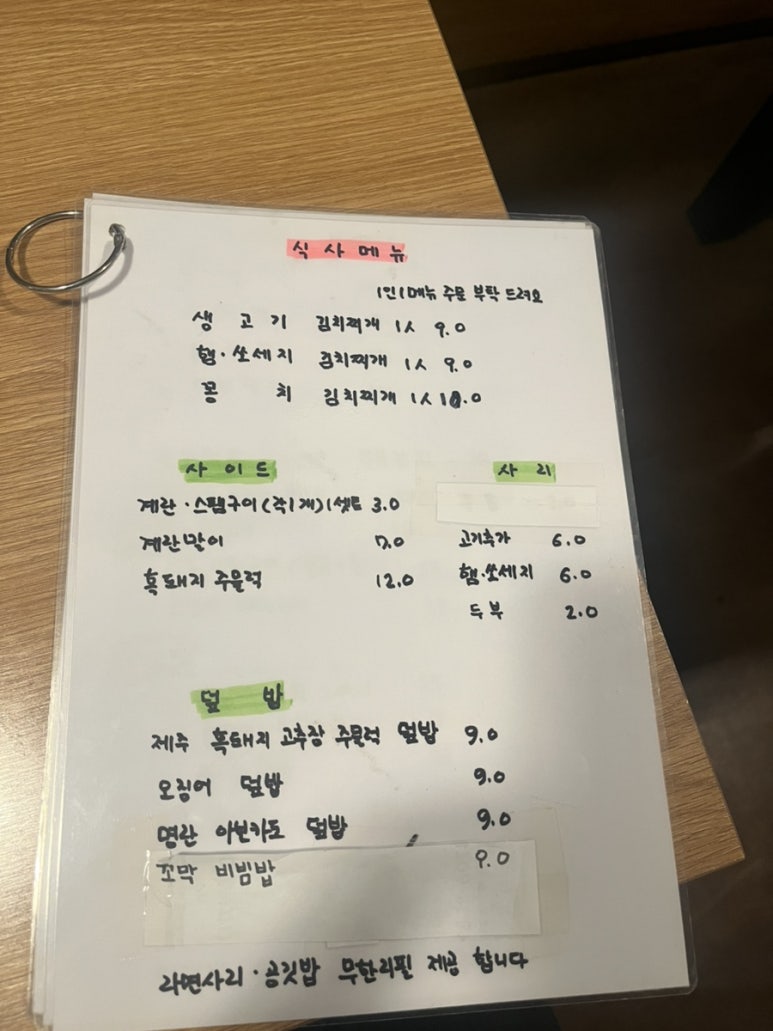 식사메뉴
1인 1메뉴 주문 부탁 드려요
생 고 기 김치찌개 1人 9.0
햄·쏘세지 김치찌개 1人 9.0
꽁 치 김치찌개 1人 10.0
사이드
계란·스팸구이(각1개)1셋트 3.0
계란말이 7.0
흑돼지 주물럭 12.0
사리
고기추가 6.0
햄·쏘세지 6.0
두부 2.0
덮 밥
제주 흑돼지 고추장 주물럭 덮밥 9.0
오징어 덮밥 9.0
명란 아보카도 덮밥 9.0
꼬막 비빔밥 9.0
라면사리·공깃밥 무한리필 제공 합니다